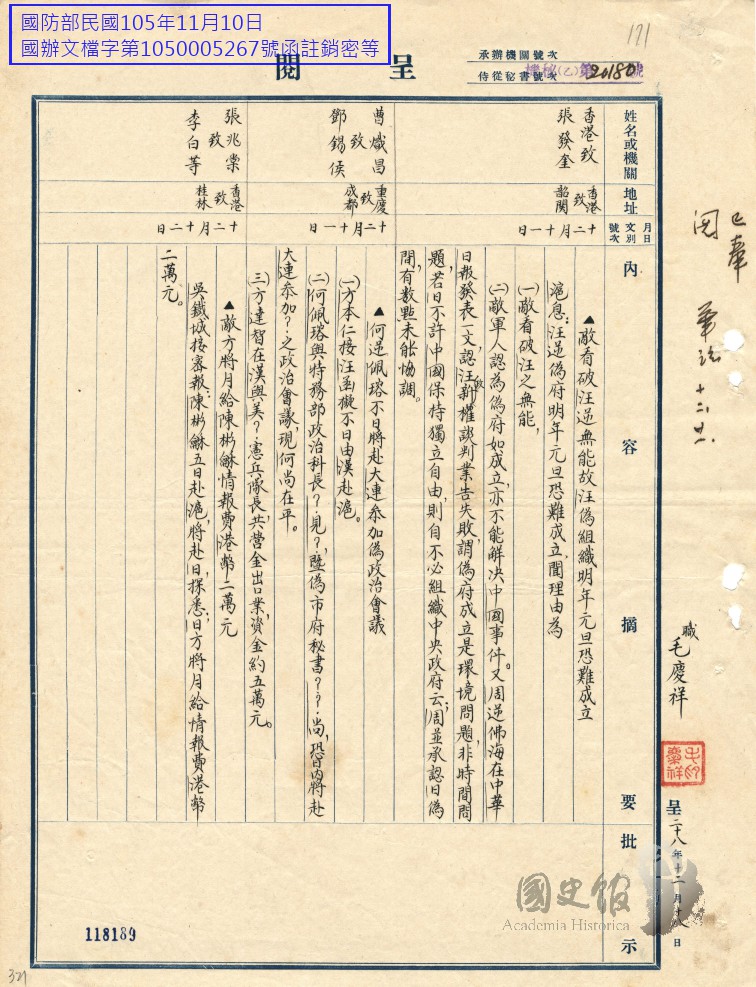 國防部民國105年11月10日
國辦文檔字第1050005267號函註銷密等
171
呈閱
承辦機關號次
侍從秘書號次
機秘(乙)第20180號
姓名或機關
地址
月日
文別
號次
內容摘要
批示
香港致
張發奎
香港致韶關
十二月十一日
▲敵看破汪逆無能故汪偽組織明年元旦恐難成立
滬息：汪逆偽府明年元旦恐難成立，聞理由為
(一)敵看破汪之無能，
(二)敵軍人認為偽府如成立，亦不能解决中國事件。又周逆佛海在中華
日報發表一文，認汪敵新權談判業告失敗，謂偽府成立是環境問題，非時間問
題，若日不許中國保持獨立自由，則自不必組織中央政府云；周並承認日偽
間，有數點未能協調。
曹熾昌
致
鄧錫侯
重慶致成都
十二月十一日
▲何逆佩瑢不日將赴大連參加偽政治會議
(一)方本仁接汪函擬不日由漢赴滬。
(二)何佩瑢與特務部政治科長？見？，暨偽市府秘書？？尚，恐日內將赴
大連參加？之政治會議，現何尚在平。
(三)方達智在漢與美？憲兵隊長，共營金出口業，資金約五萬元。
張兆棠
致
李白等
香港致桂林
十二月十二日
▲敵方將月給陳彬龢情報費港幣二萬元
吳鐵城接密報：陳彬龢五日赴滬，將赴日，探悉：日方將月給情報費港幣
二萬元。
已奉
閱
十二、廿
職毛慶祥
毛慶祥印
呈二十八年十二月十八日
國史館
Academia Historica
118189
321